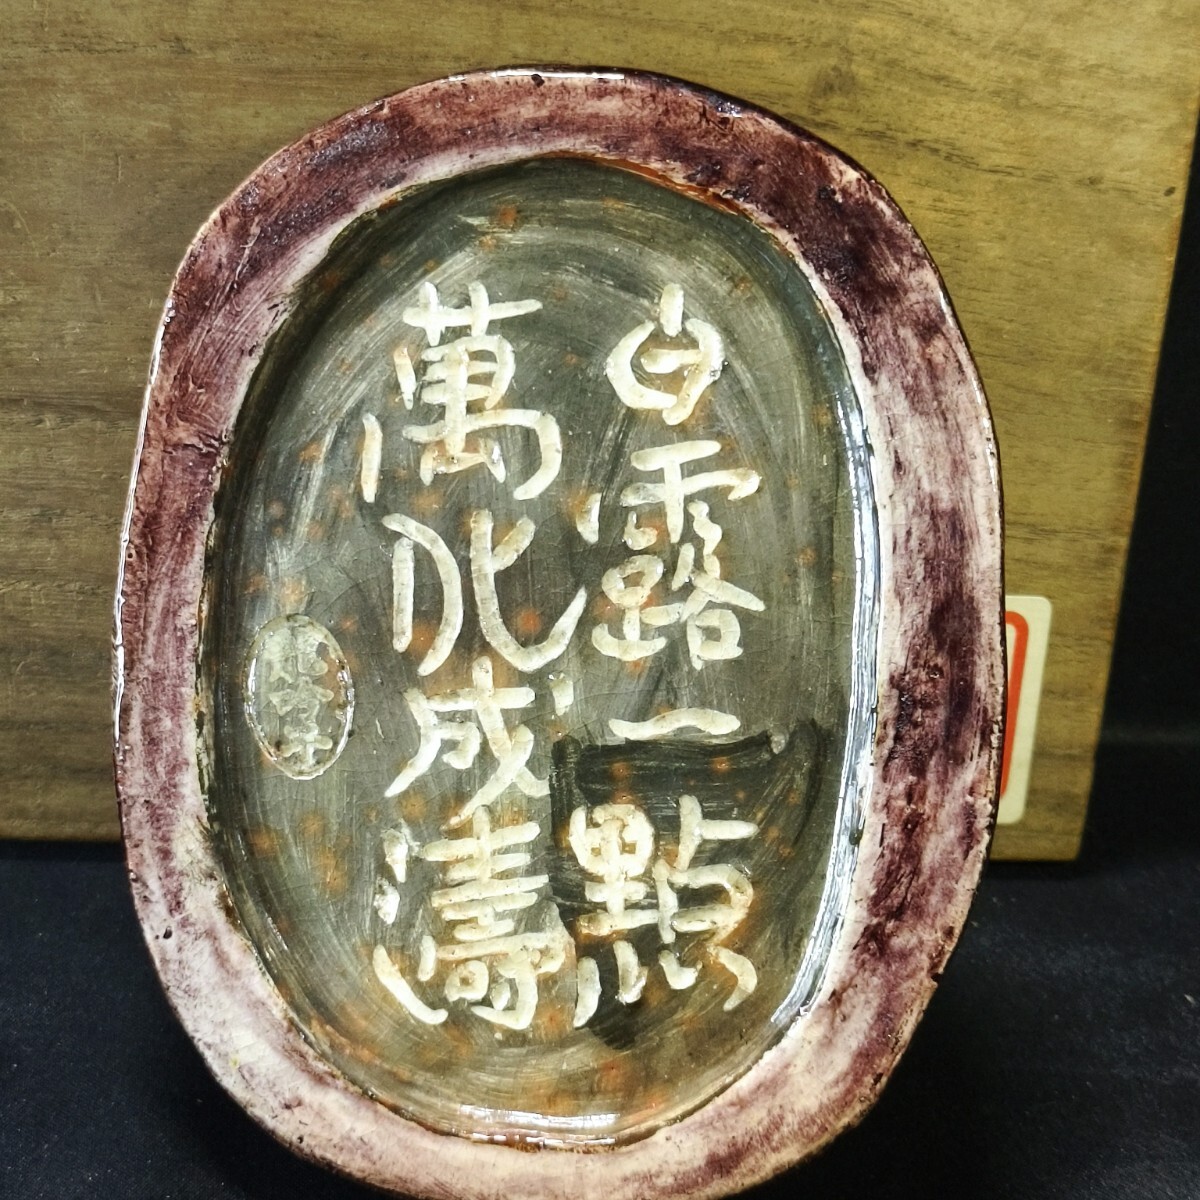 白露一點
萬化成濤